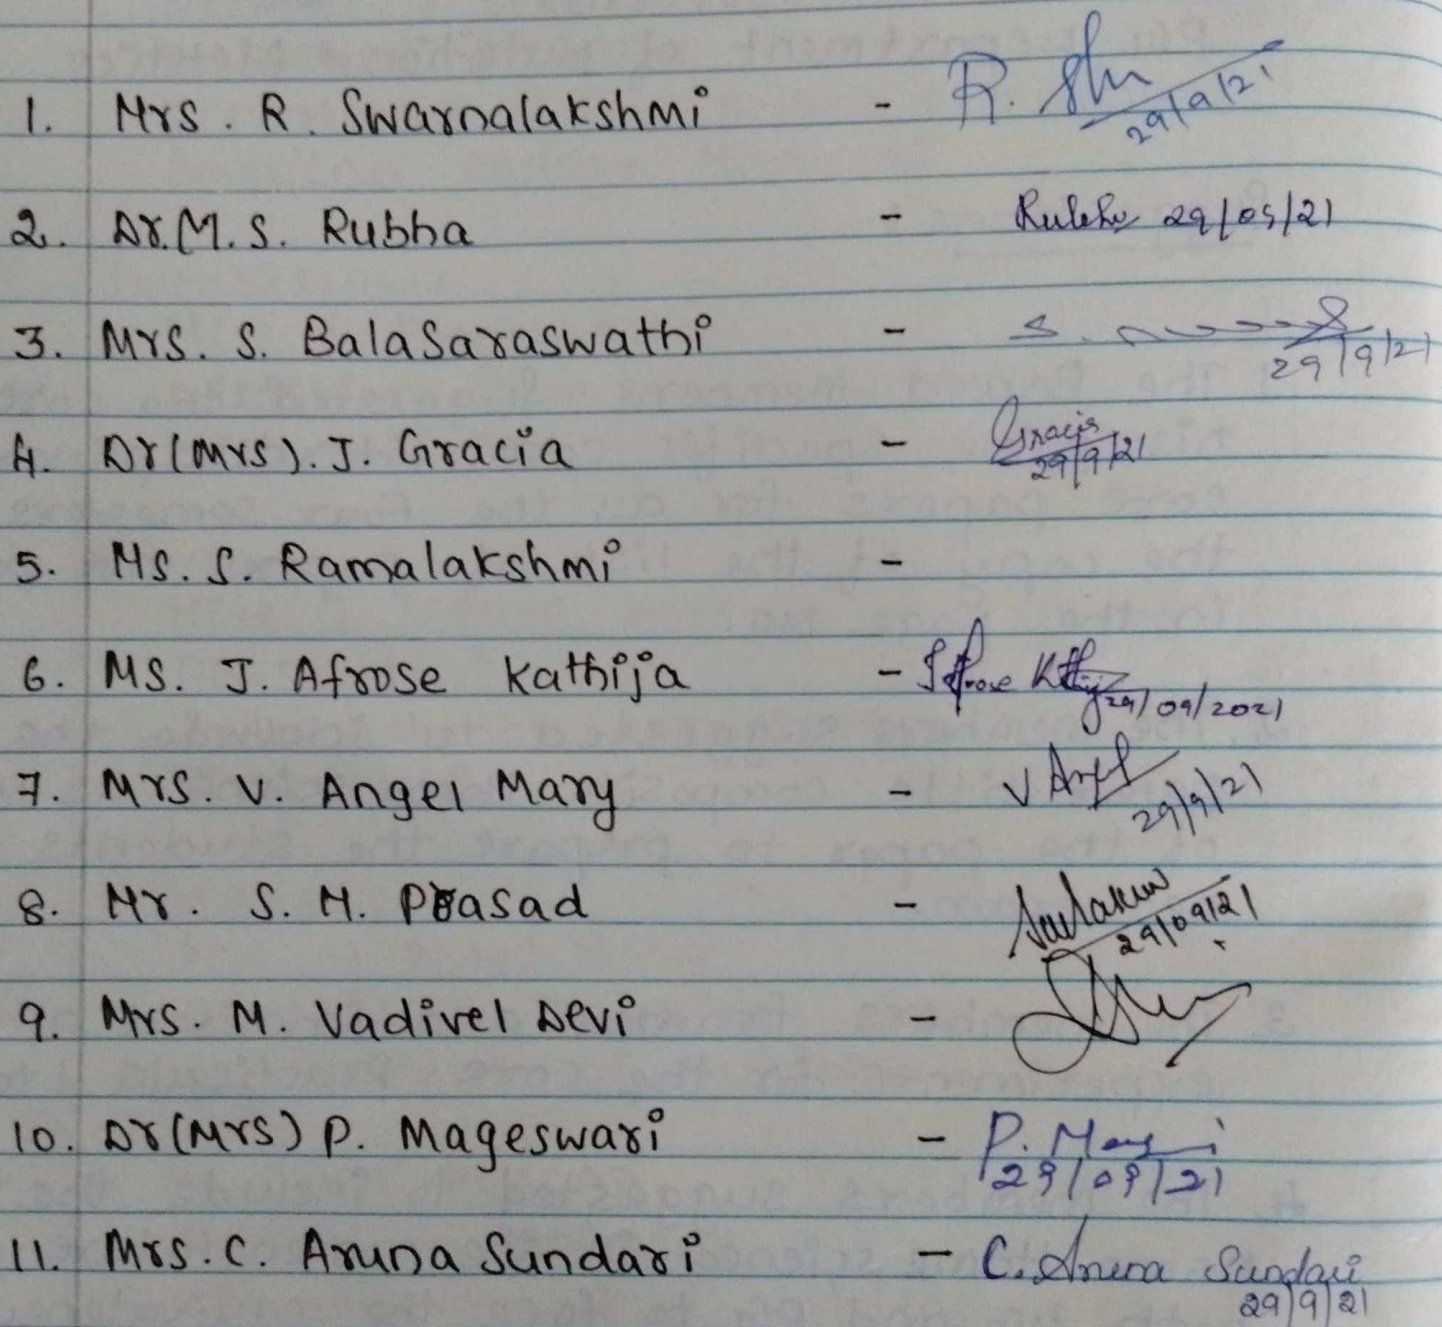 1. Mrs. R. Swarnalakshmi - R. 29/9/21
2. Dr. M. S. Rubha - 29/09/21
3. Mrs. S. BalaSaraswathi - S. 29/9/21
4. Dr(Mrs). J. Gracia - Gracia 29/9/21
5. Ms. S. Ramalakshmi -
6. Ms. J. Afrose Kathija - J Afrose 29/09/2021
7. Mrs. V. Angel Mary - V Angel 29/9/21
8. Mr. S. M. Prasad - 29/09/21
9. Mrs. M. Vadivel Devi -
10. Dr(Mrs) P. Mageswari - P. 29/09/21
11. Mrs. C. Aruna Sundari - C. Aruna Sundari 29/9/21